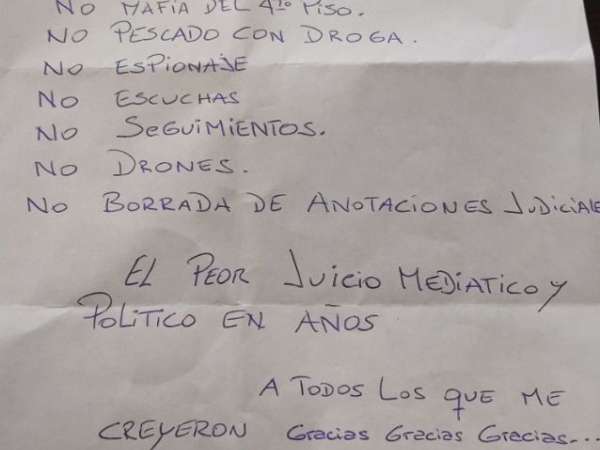 NO MAFIA DEL 4to PISO.
NO PESCADO CON DROGA.
NO ESPIONAJE
NO ESCUCHAS
NO SEGUIMIENTOS.
NO DRONES.
NO BORRADA DE ANOTACIONES JUDICIALE
EL PEOR JUICIO MEDIATICO Y
POLITICO EN AÑOS
A TODOS LOS QUE ME
CREYERON Gracias Gracias Gracias...